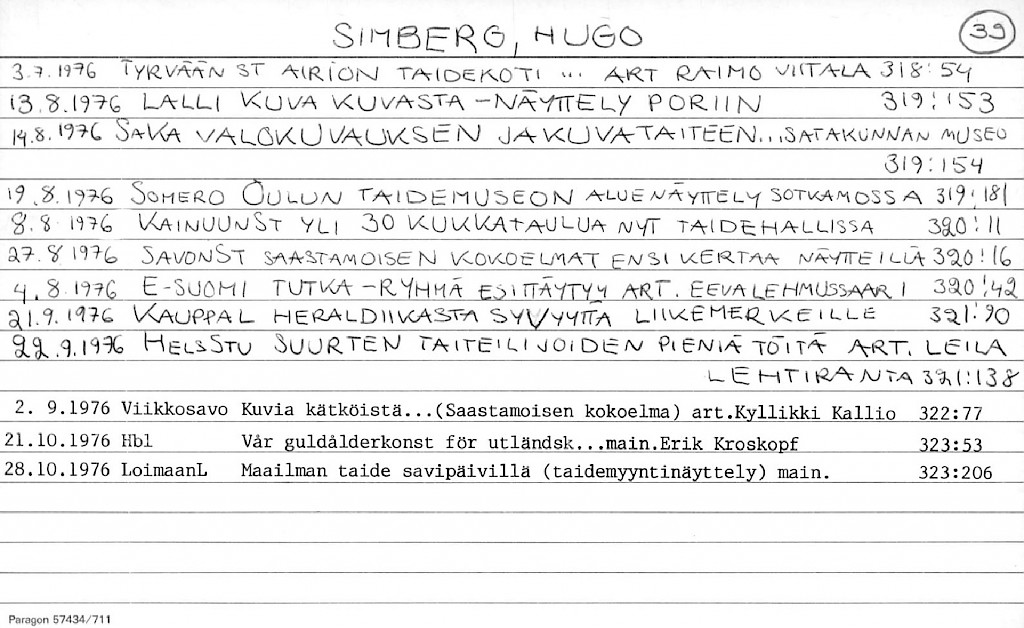 SIMBERG, HUGO 39
3.7.1976 TYRVÄÄN ST AIRION TAIDEKOTI ... ART RAIMO VIITALA 318:54
13.8.1976 LALLI KUVA KUVASTA -NÄYTTELY PORIIN 319:153
14.8.1976 SAKA VALOKUVAUKSEN JA KUVATAITEEN... SATAKUNNAN MUSEO
319:154
19.8.1976 SOMERO OULUN TAIDEMUSEON ALUENÄYTTELY SOTKAMOSSA 319:181
8.8 1976 KAINUUNST YLI 30 KUKKATAULUA NYT TAIDEHALLISSA 320:11
27.8 1976 SAVONST SAASTAMOISEN KOKOELMAT ENSI KERTAA NÄYTTEILLÄ 320:16
4.8.1976 E-SUOMI TUTKA -RYHMÄ ESITTÄYTYY ART. EEVA LEHMUSSAARI 320:42
21.9.1976 KAUPPAL HERALDIIKASTA SYVYYTTÄ LIIKEMERKEILLE 321:90
22.9.1976 HELSSTU SUURTEN TAITEILIJOIDEN PIENIÄ TÖITÄ ART. LEILA
LEHTIRANTA 321:138
2. 9.1976 Viikkosavo Kuvia kätköistä...(Saastamoisen kokoelma) art.Kyllikki Kallio 322:77
21.10.1976 Hbl Vår guldålderkonst för utländsk...main.Erik Kroskopf 323:53
28.10.1976 LoimaanL Maailman taide savipäivillä (taidemyyntinäyttely) main. 323:206
Paragon 57434/711